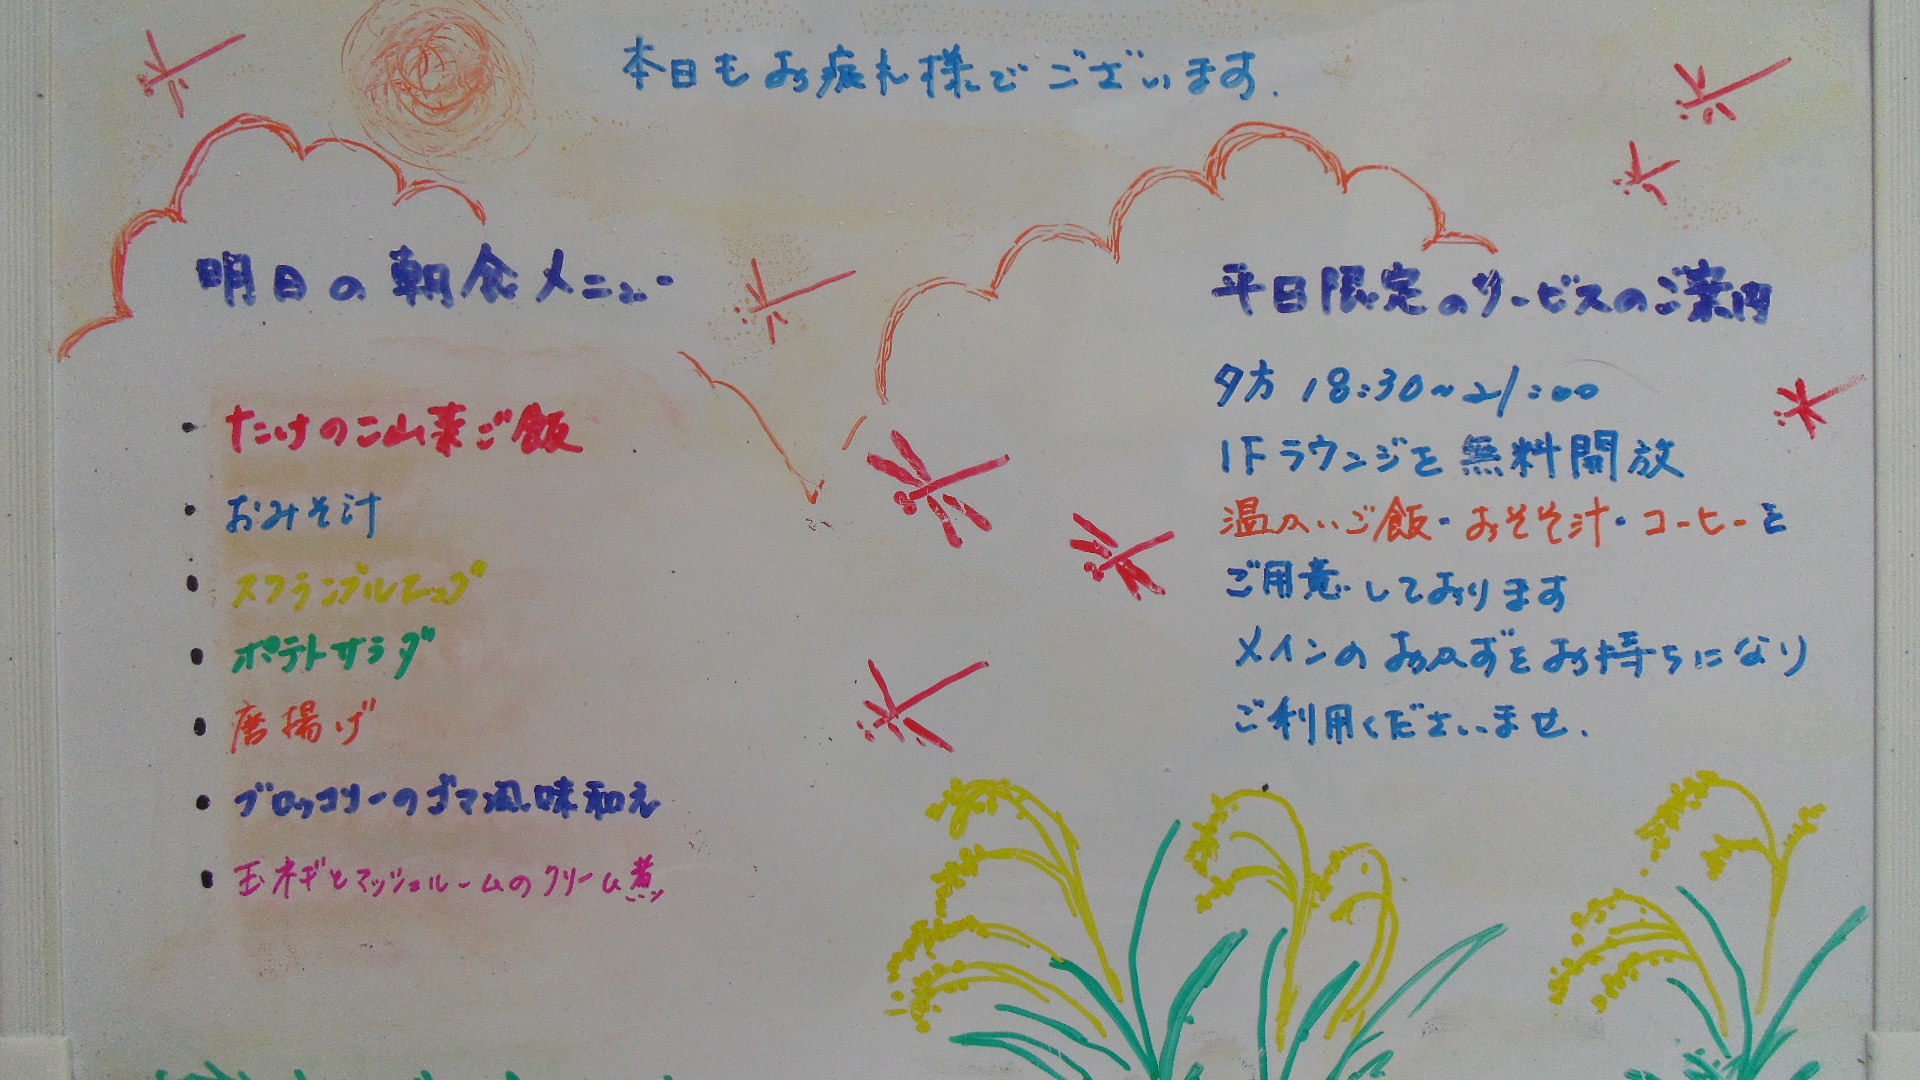 本日もお疲れ様でございます.
明日の朝食メニュー
・たけのこ山菜ご飯
・おみそ汁
・スクランブルエッグ
・ポテトサラダ
・唐揚げ
・ブロッコリーのゴマ風味和え
・玉ネギとマッシュルームのクリーム煮
平日限定のサービスのご案内
夕方 18:30~21:00
1Fラウンジを無料開放
温かいご飯・おみそ汁・コーヒーを
ご用意しております
メインのおかずをお持ちになり
ご利用くださいませ.